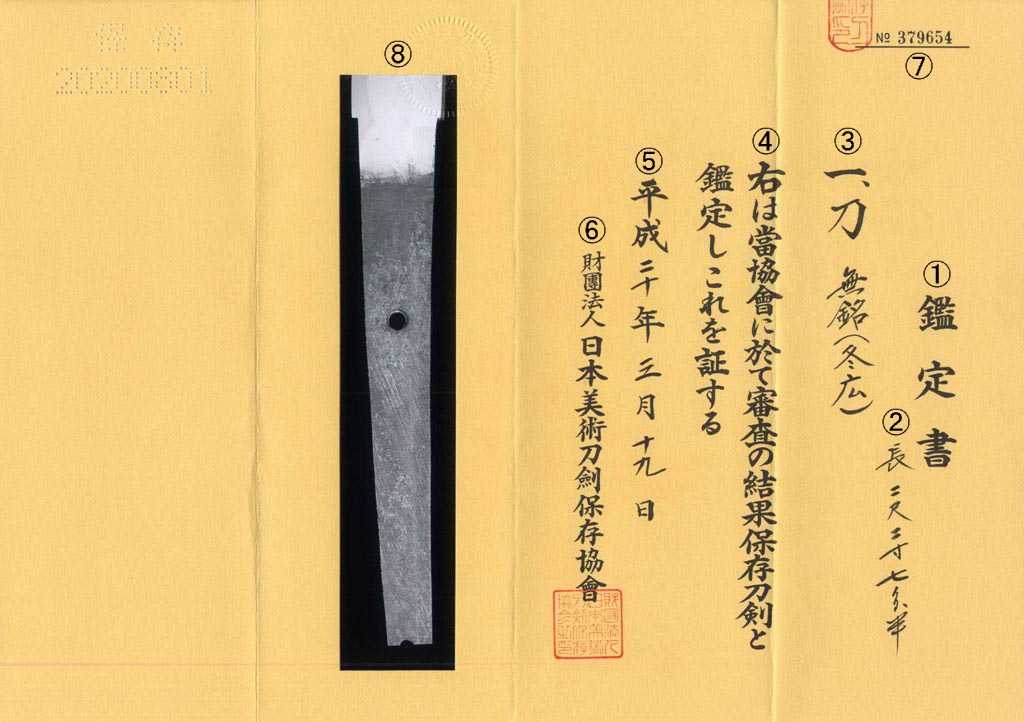 № 379654
⑦
①
鑑定書
②
長 二尺二寸七分半
③
一、刀 無銘(冬広)
④
右は當協會に於て審査の結果保存刀剣と
鑑定しこれを証する
⑤
平成二十年三月十九日
⑥
財團法人日本美術刀劍保存協會
⑧
保存
20200801